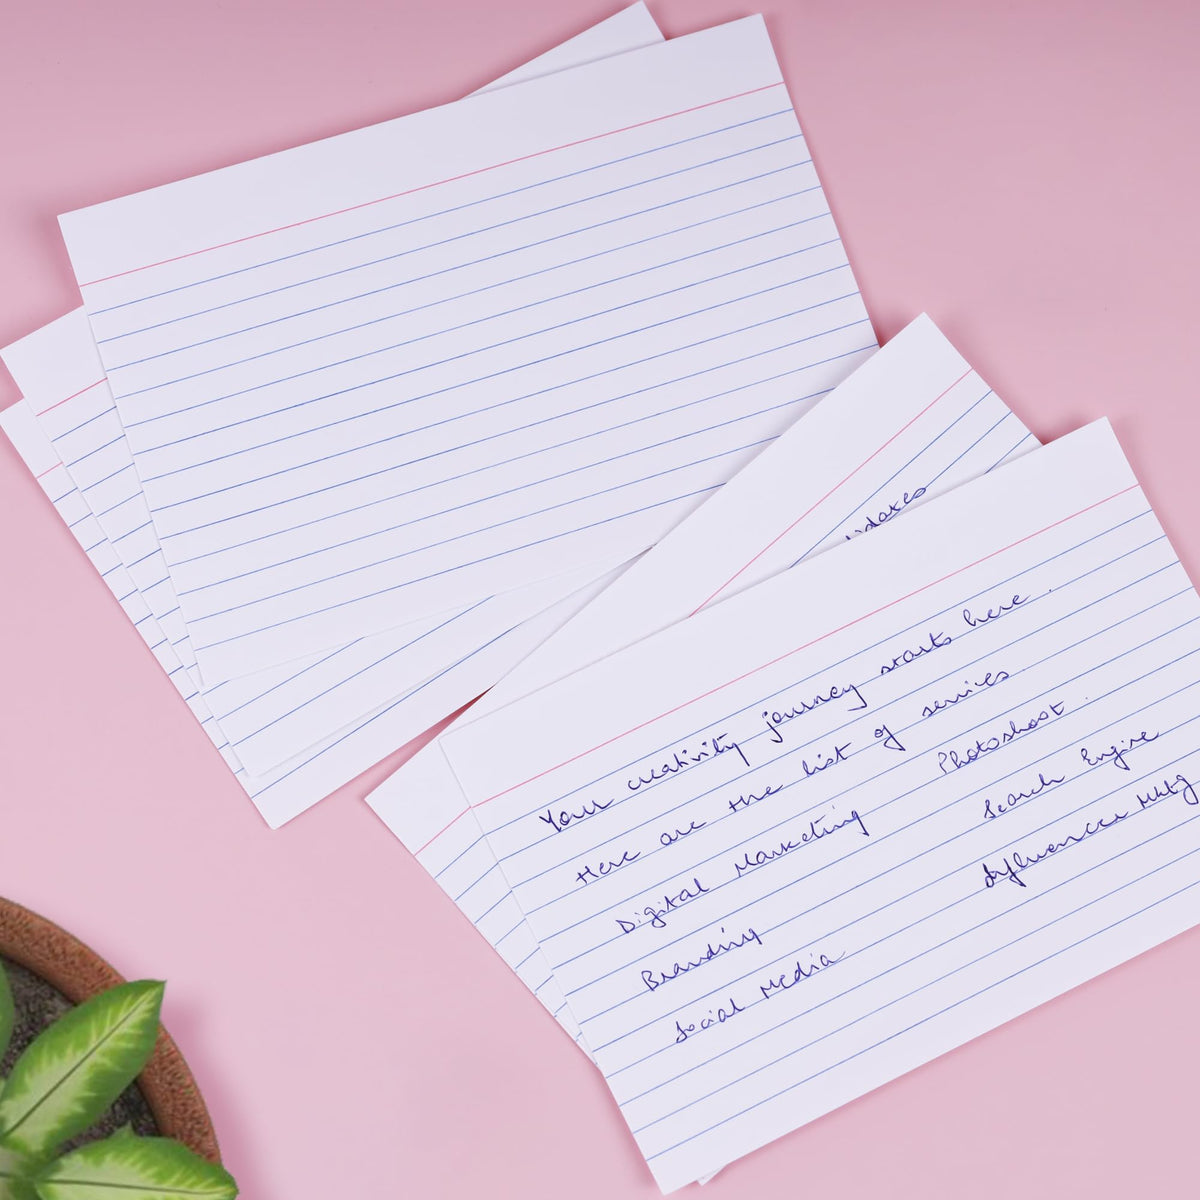 Your creativity journey starts here.
Here are the list of services
Digital Marketing Photoshoot.
Branding Search Engine
Social Media Influencer Mktg